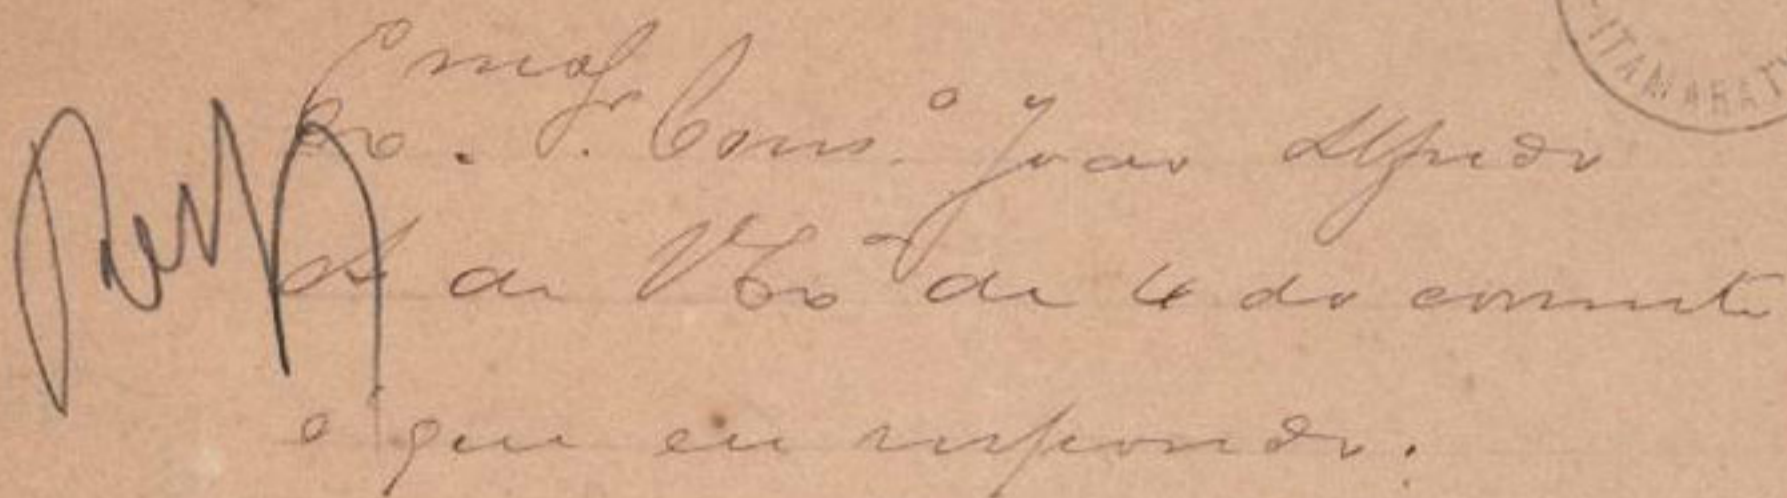 ITAMARAT
Exmo. Sr. Cons.o João Alfredo
A de V Exa de 4 do corrente
é que eu respondo.